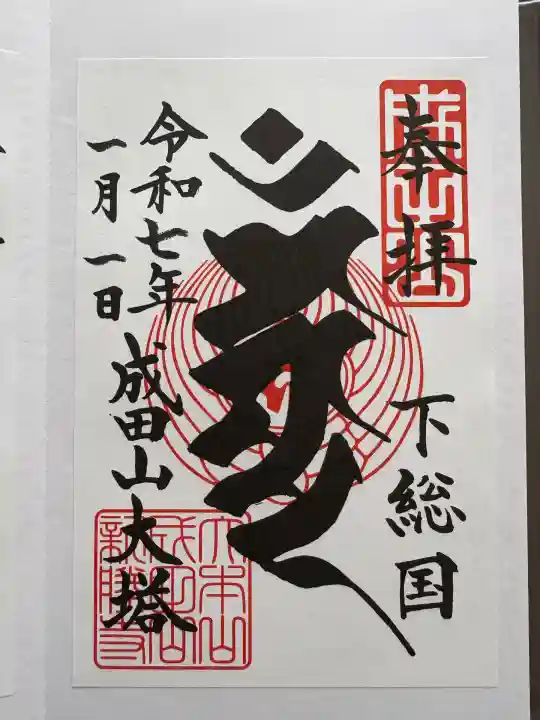 奉拝
下総国
令和七年
一月一日
成田山大塔
大本山
成田山
新勝寺